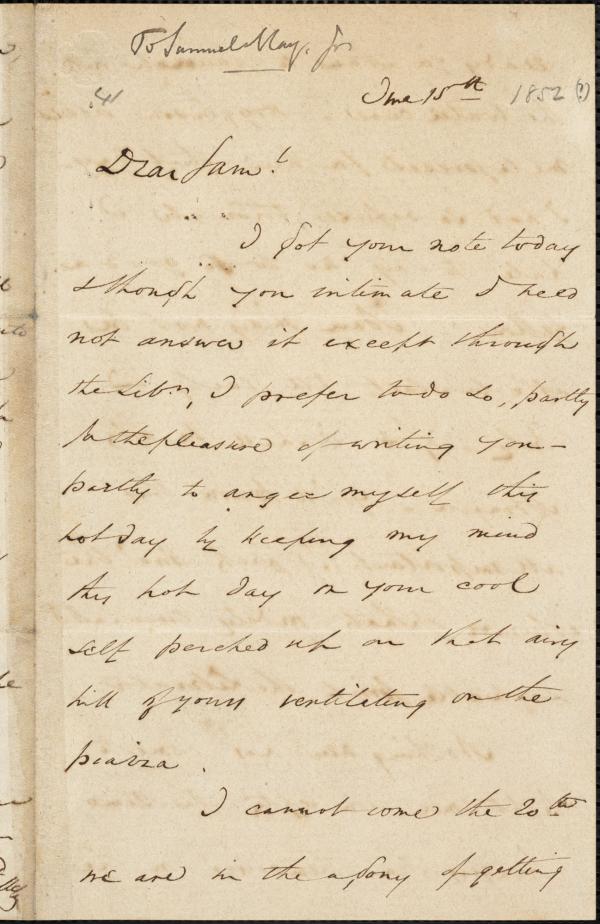 To Samuel May, Jr
June 15th 1852 (?)
Dear Sam.l
I got your note today
& though you intimate I need
not answer it except through
the Lib.n, I prefer to do so, partly
for the pleasure of writing you –
partly to anger myself this
hot day by keeping my mind
this hot day on your cool
self perched up on that airy
hill of yours ventilating on the
piazza.
I cannot come the 20th
we are in the agony of getting